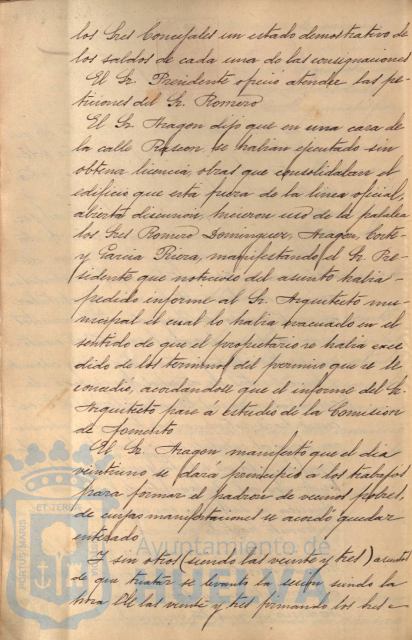 los Sres Concejales un estado demostrativo de
los saldos de cada una de las consignaciones
El Sr. Presidente ofreció atender las pe-
ticiones del Sr. Romero
El Sr. Aragon dijo que en una casa de
la calle Rascon, se habian ejecutado sin
obtener licencia, obras que consolidaban el
edificio que esta fuera de la linea oficial,
abierta discusion, hicieron uso de la palabra
los Sres Romero Dominguez, Aragon, Corte
y Garcia Riera, manifestando el Sr. Pre-
sidente que noticioso del asunto habia
pedido informe al Sr. Arquitecto mu-
nicipal el cual lo habia evacuado en el
sentido de que el propietario se habia exce
dido de los terminos del permiso que se le
concedió, acordandose que el informe del Sr.
Arquitecto pase á estudio de la Comision
de Fomento
El Sr. Aragon manifestó que el dia
veintiuno se dará principio á los trabajos
para formar el padron de vecinos pobres,
de cuyas manifestaciones se acordó quedar
enterado
Y sin otros (siendo las veinte y tres) asuntos
de que tratar se levantó la sesion siendo la
hora de las veinte y tres firmando los Sres
PORTUS MARIS ET TERRAE
Ayuntamiento de
HUELVA